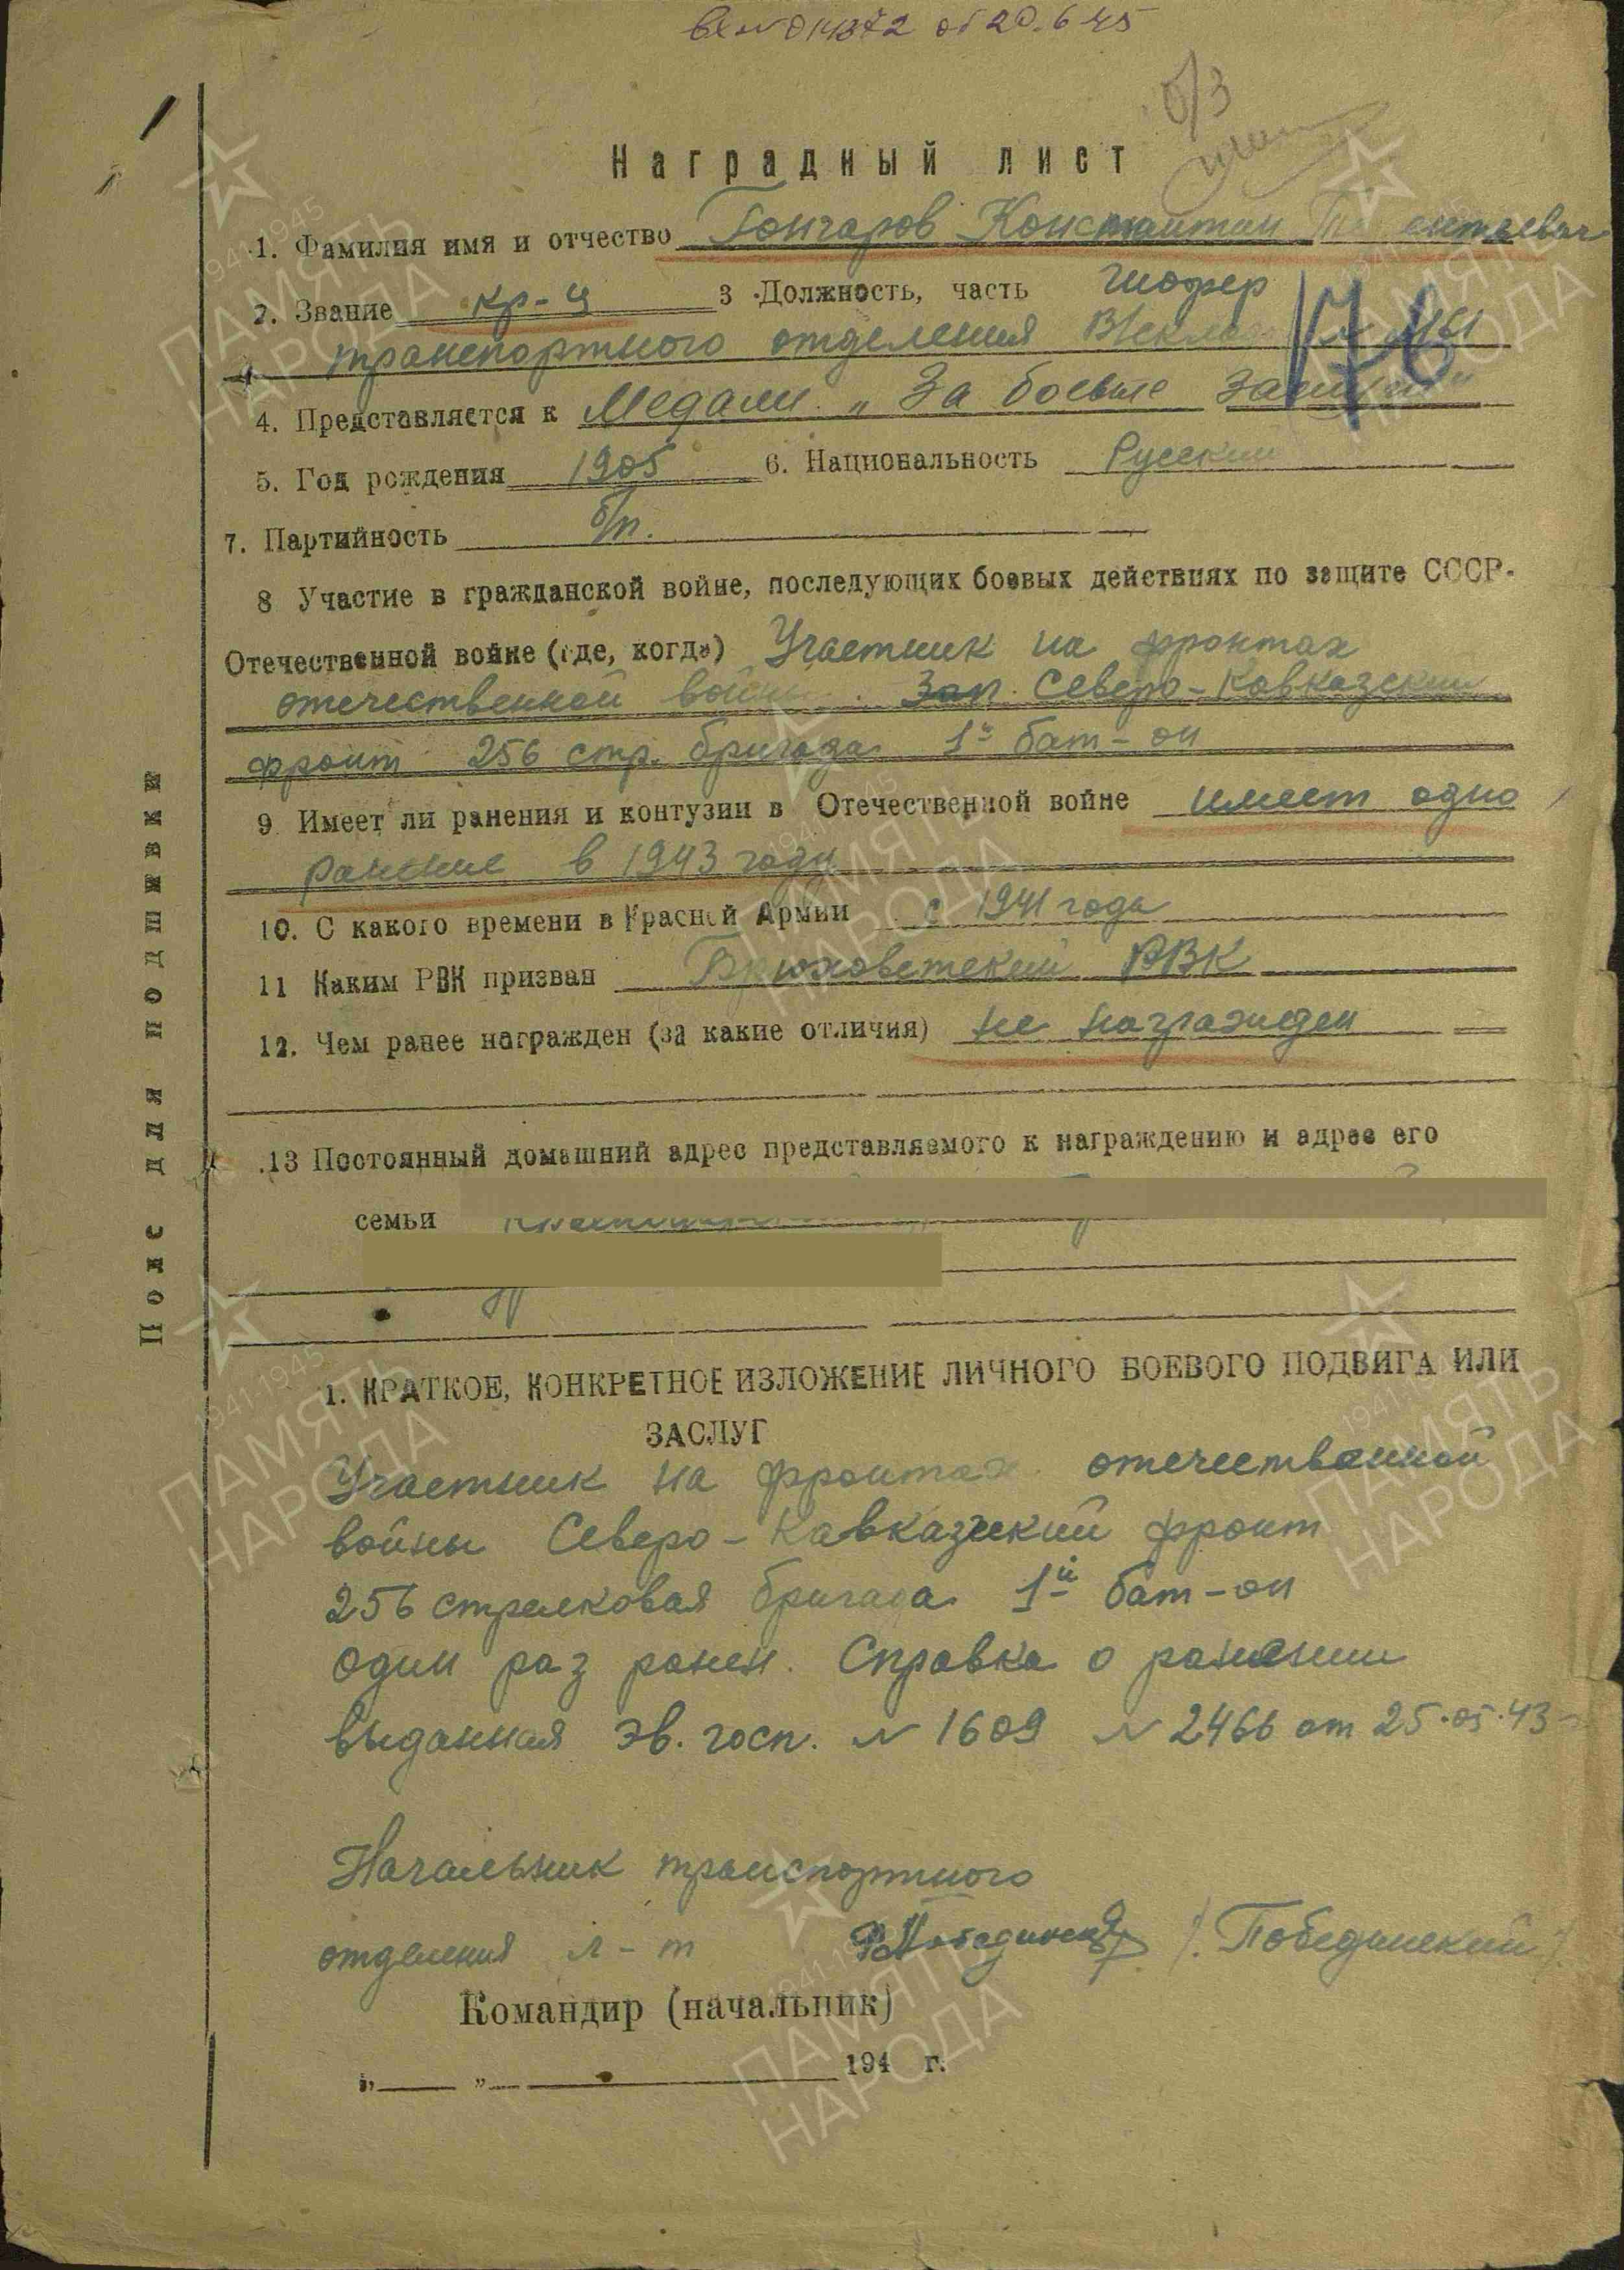 вх № 014372 от 20.6 45
б/з
Наградный лист
1. Фамилия имя и отчество Гончаров Константин
2. Звание кр-ц 3 Должность, часть шофер
транспортного отделения
176
4. Представляется к Медали „За боевые заслуги"
5. Год рождения 1905 6. Национальность Русский
7. Партийность б/п.
8 Участие в гражданской войне, последующих боевых действиях по защите СССР.
Отечественной войне (где, когда) Участник на фронтах
отечественной войны. Зап. Северо-Кавказский
фронт 256 стр. бригада 1й бат-он
9. Имеет ли ранения и контузии в Отечественной войне имеет одно
ранение в 1943 году
10. С какого времени в Красной Армии с 1941 года
11 Каким РВК призван Брюховетский РВК
12. Чем ранее награжден (за какие отличия) не награжден
13 Постоянный домашний адрес представляемого к награждению и адрес его
семьи
1. КРАТКОЕ, КОНКРЕТНОЕ ИЗЛОЖЕНИЕ ЛИЧНОГО БОЕВОГО ПОДВИГА ИЛИ
ЗАСЛУГ
Участник на фронтах отечественной
войны Северо-Кавказский фронт
256 стрелковая бригада 1й бат-он
один раз ранен. Справка о ранении
выданная эв. госп. № 1609 № 2466 от 25.05.43
Начальник транспортного
отделения л-т Побединский /Побединский/
Командир (начальник)
„ " 194 г.
Поле для подшивки
1941-1945
ПАМЯТЬ
НАРОДА